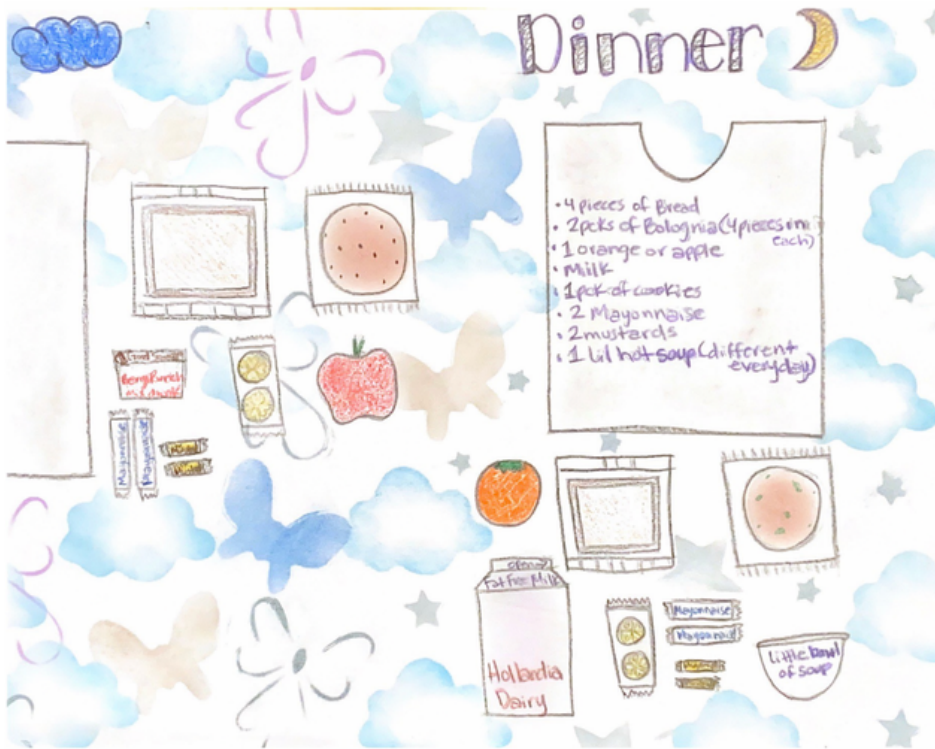 Dinner
• 4 pieces of Bread
• 2pcks of Bolognia (4 pieces in
each)
• 1 orange or apple
• Milk
• 1 pck of cookies
• 2 Mayonnaise
• 2 mustards
• 1 Lil hot soup (different
everyday)
Mayonnaise
Mayonnaise
open
Fat Free Milk
Hollandia
Dairy
Mayonnaise
Mayonnaise
Little bowl
of soup